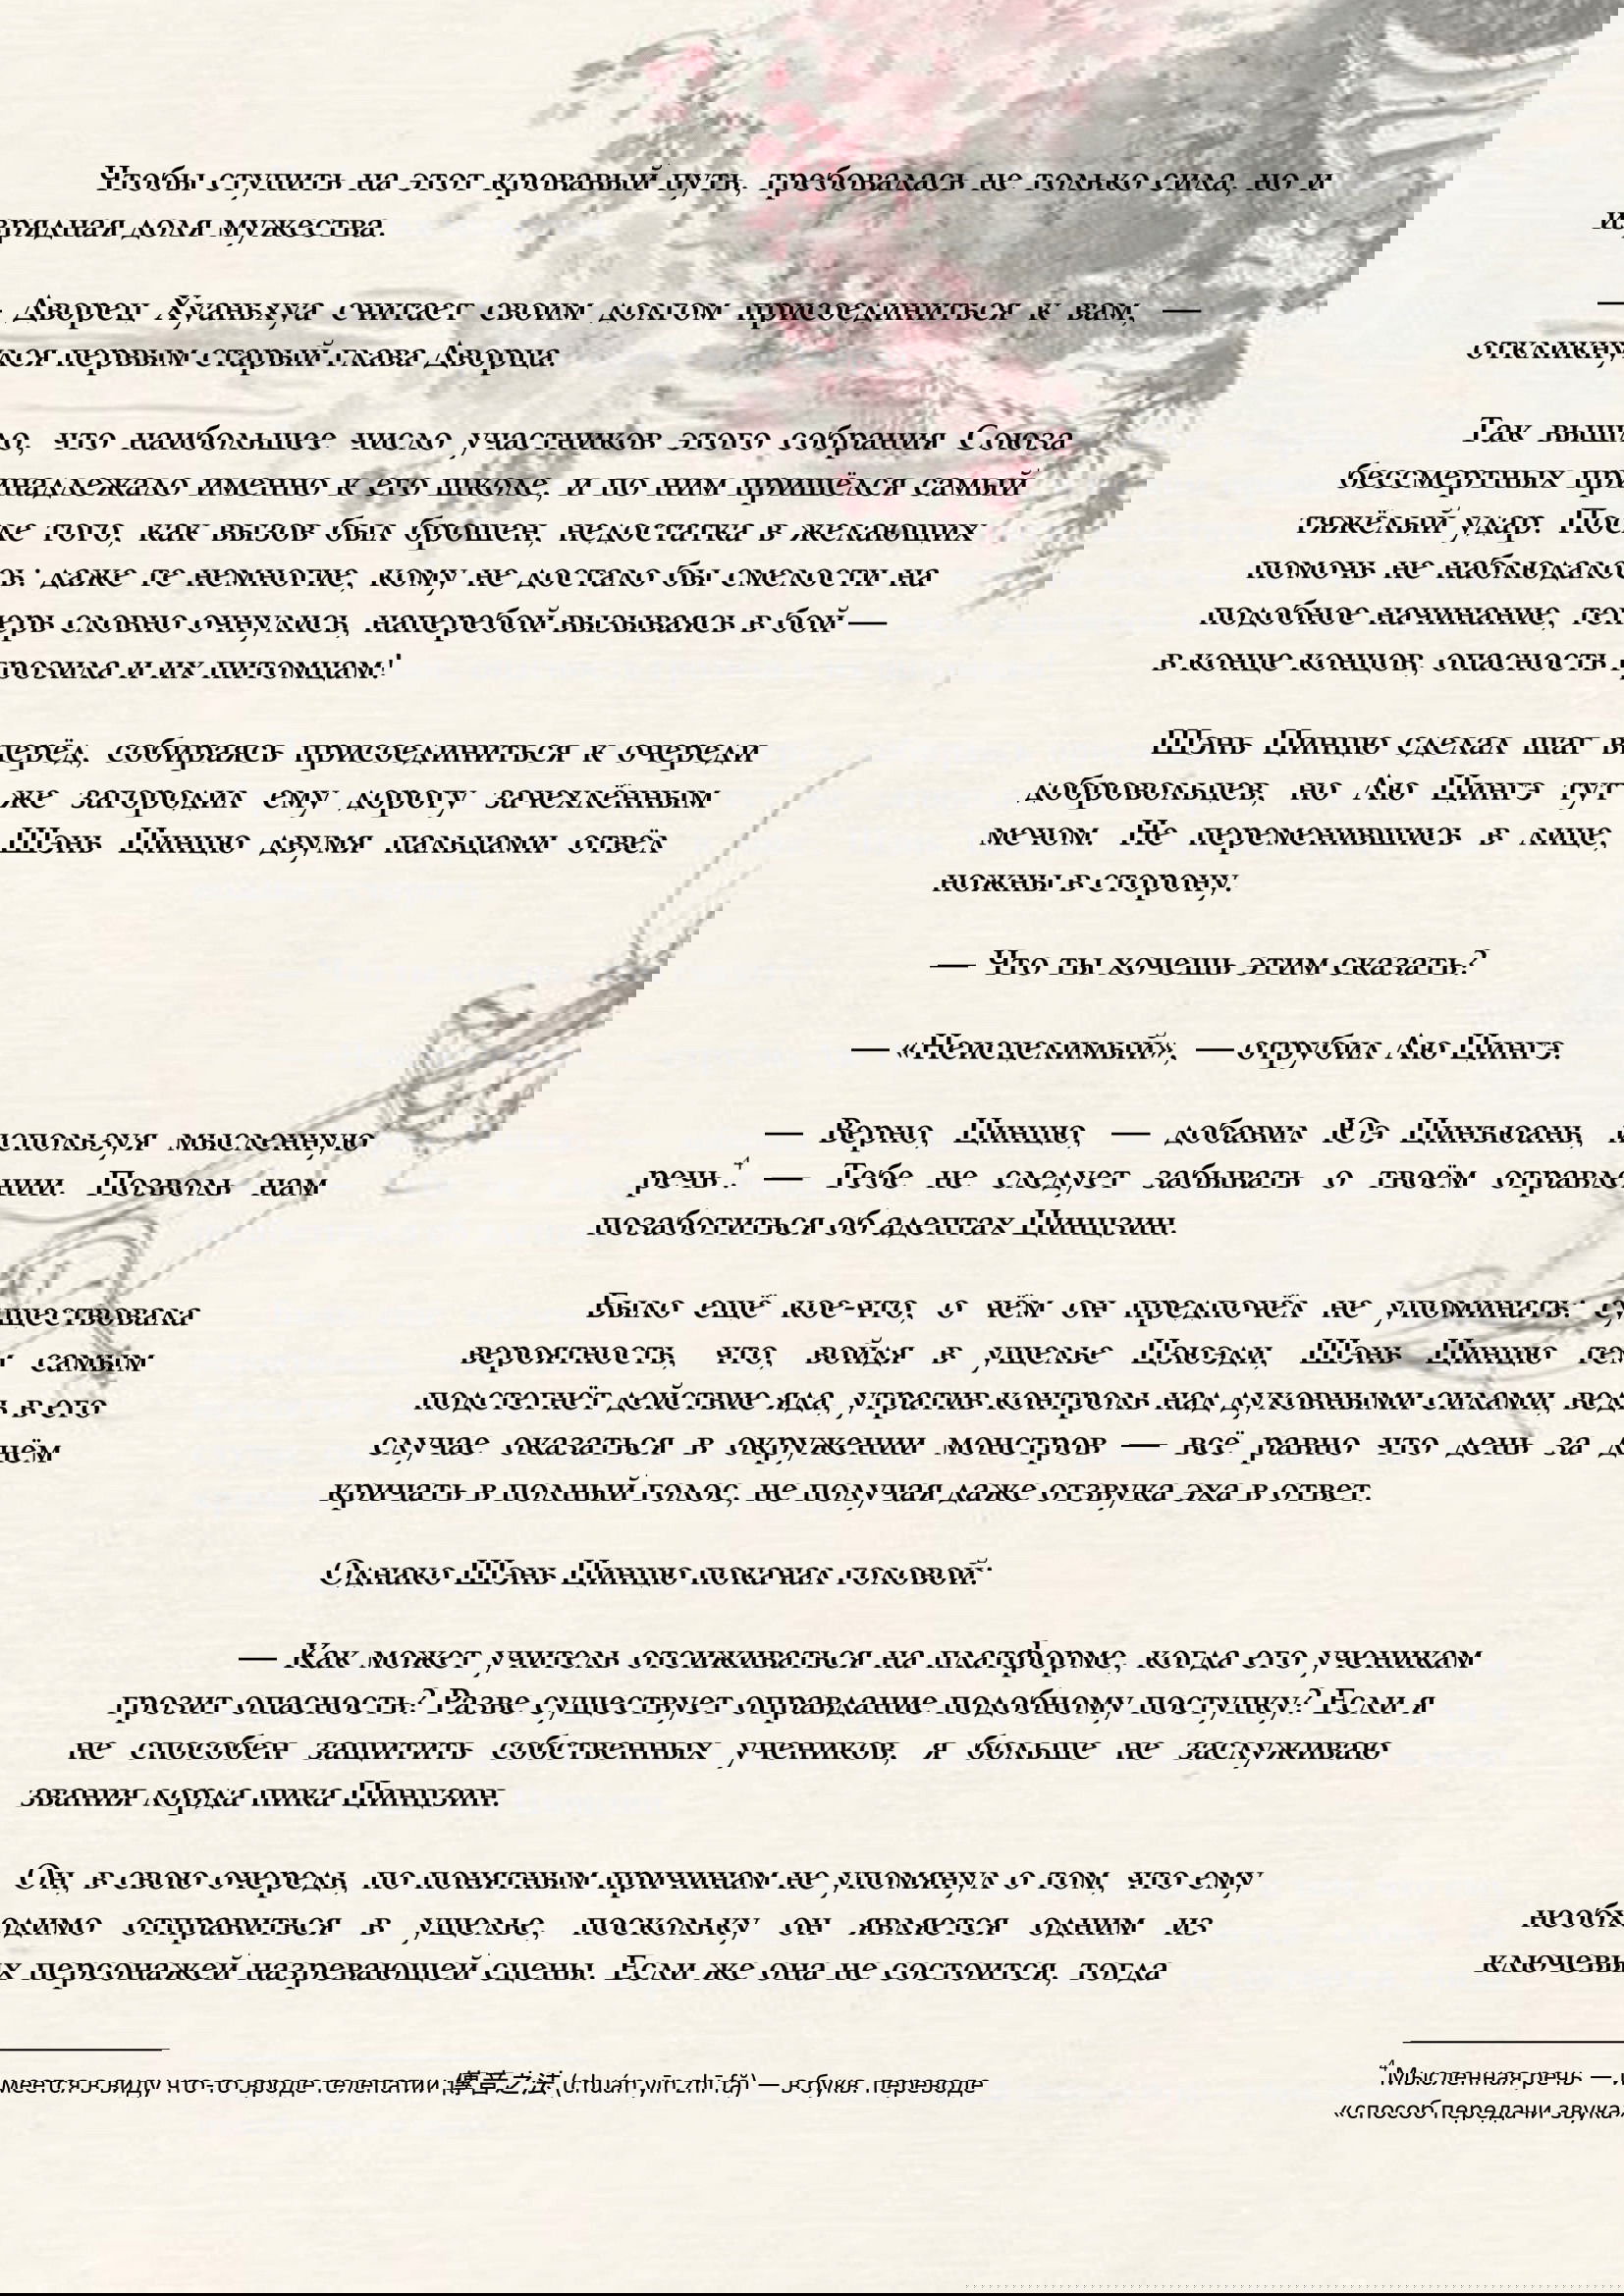 Чтобы ступить на этот кровавый путь, требовалась не только сила, но и
изрядная доля мужества.
— Дворец Хуаньхуа считает своим долгом присоединиться к вам, —
откликнулся первым старый глава Дворца.
Так вышло, что наибольшее число участников этого собрания Союза
бессмертных принадлежало именно к его школе, и по ним пришёлся самый
тяжёлый удар. После того, как вызов был брошен, недостатка в желающих
помочь не наблюдалось: даже те немногие, кому не достало бы смелости на
подобное начинание, теперь словно очнулись, наперебой вызываясь в бой —
в конце концов, опасность грозила и их питомцам!
Шэнь Цинцю сделал шаг вперёд, собираясь присоединиться к очереди
добровольцев, но Лю Цингэ тут же загородил ему дорогу зачехлённым
мечом. Не переменившись в лице, Шэнь Цинцю двумя пальцами отвёл
ножны в сторону.
— Что ты хочешь этим сказать?
— «Неисцелимый», — отрубил Лю Цингэ.
— Верно, Цинцю, — добавил Юэ Цинъюань, используя мысленную
речь⁴. — Тебе не следует забывать о твоём отравлении. Позволь нам
позаботиться об адептах Цинцзин.
Было ещё кое-что, о чём он предпочёл не упоминать: существовала
вероятность, что, войдя в ущелье Цзюэди, Шэнь Цинцю тем самым
подстегнёт действие яда, утратив контроль над духовными силами, ведь в его
случае оказаться в окружении монстров — всё равно что день за днём
кричать в полный голос, не получая даже отзвука эха в ответ.
Однако Шэнь Цинцю покачал головой:
— Как может учитель отсиживаться на платформе, когда его ученикам
грозит опасность? Разве существует оправдание подобному поступку? Если я
не способен защитить собственных учеников, я больше не заслуживаю
звания лорда пика Цинцзин.
Он, в свою очередь, по понятным причинам не упомянул о том, что ему
необходимо отправиться в ущелье, поскольку он является одним из
ключевых персонажей назревающей сцены. Если же она не состоится, тогда
⁴ Мысленная речь — имеется в виду что-то вроде телепатии, 傳音之法 (chuán yīn zhī fǎ) — в букв. переводе
«способ передачи звука»